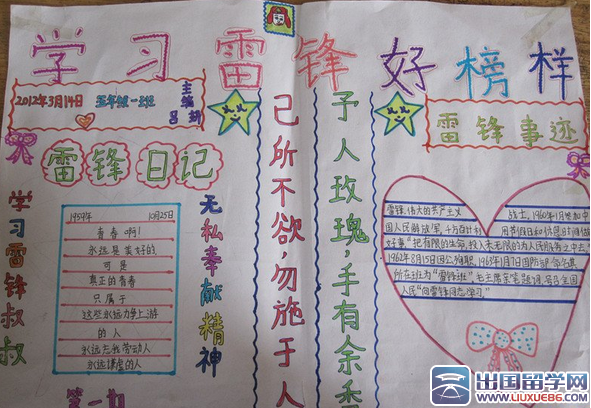 学习雷锋好榜样
2012年3月14日 五年级一班
主编
雷锋日记
学习雷锋叔叔
1959年 10月25日
青春啊!
永远是美好的,
可是
真正的青春
只属于
这些永远力争上游
的人
永远忘我劳动人
永远谦虚的人
无私奉献精神
己所不欲,勿施于人
予人玫瑰,手有余香
雷锋事迹
雷锋,伟大的共产主义
战士,1960年1月参加中
国人民解放军,十为自计划
用节假日和休息时间做
好事"把有限的生命,投入未无限的为人民服务之中去。"
1962年8月15日因公殉职,1963年1月7日国防部命名其
所在班为"雷锋班",毛主席亲笔题词,号召全国
人民"向雷锋同志学习。"
出国留学网
WWW.LIUXUE86.COM